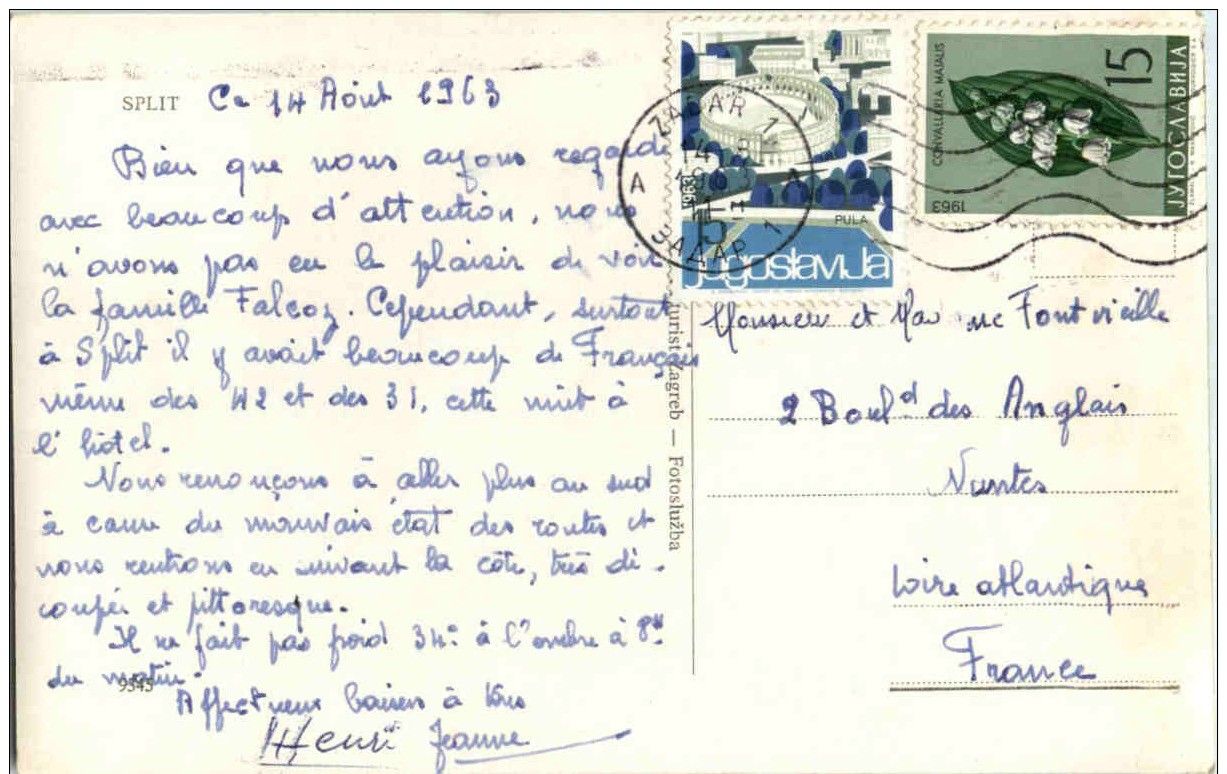 SPLIT Ce 14 Août 1963
Bien que nous ayons regardé
avec beaucoup d'attention, nous
n'avons pas eu le plaisir de voir
la famille Falcoz. Cependant, surtout
à Split il y avait beaucoup de Français
même des 42 et des 31, cette nuit à
l'hôtel.
Nous renonçons à aller plus au sud
à cause du mauvais état des routes et
nous rentrons en suivant la côte, très dé-
coupée et pittoresque.
Il ne fait pas froid 34° à l'ombre à 8H
du matin.
9545
Affectueux baisers à tous
Henri Jeanne
Turist Zagreb — Fotoslužba
PULA
jugoslavija
1963
ZADAR 1
ЗАДАР 1
A
CONVALLARIA MAJALIS
15
ЈУГОСЛАВИЈА
1963
Monsieur et Fontvieille
2 Boul^d des Anglais
Nantes
Loire atlantique
France